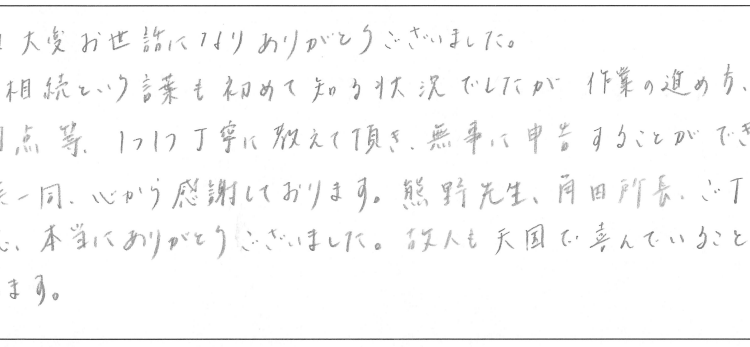 大変お世話になりありがとうございました。
相続という言葉も初めて知る状況でしたが 作業の進め方、
点等、1つ1つ丁寧に教えて頂き、無事に申告することができ
一同、心から感謝しております。熊野先生、角田所長、ご丁
、本当にありがとうございました。故人も天国で喜んでいること
ます。